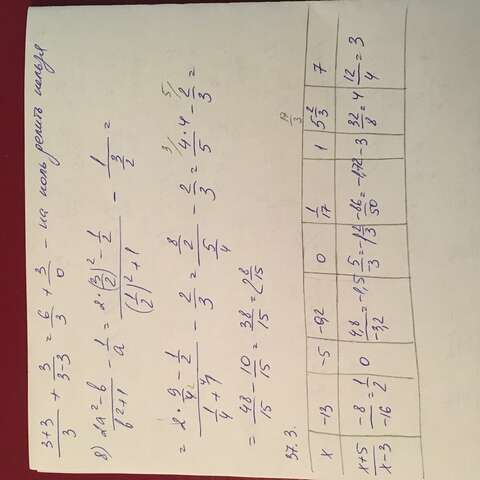 (3+3)/3 + 3/(3-3) = 6/3 + 3/0 - на ноль делить нельзя
8) (2a² - b)/(b² + 1) - 1/a = (2·(3/2)² - 1/2)/((1/2)² + 1) - 1/(3/2) =
= (2·9/4 - 1/2)/(1/4 + 1) - 2/3 = (8/2)/(5/4) - 2/3 = (4·4)/5 - 2/3 =
= 48/15 - 10/15 = 38/15 = 2 8/15
37.3. 17/3
x | -13 | -5 | -0,2 | 0 | 1/17 | 1 | 5 2/3 | 7
(x+5)/(x-3) | -8/-16 = 1/2 | 0 | 4,8/-3,2 = -1,5 | 5/-3 = -1 2/3 | -86/50 = -1,72 | -3 | 32/8 = 4 | 12/4 = 3